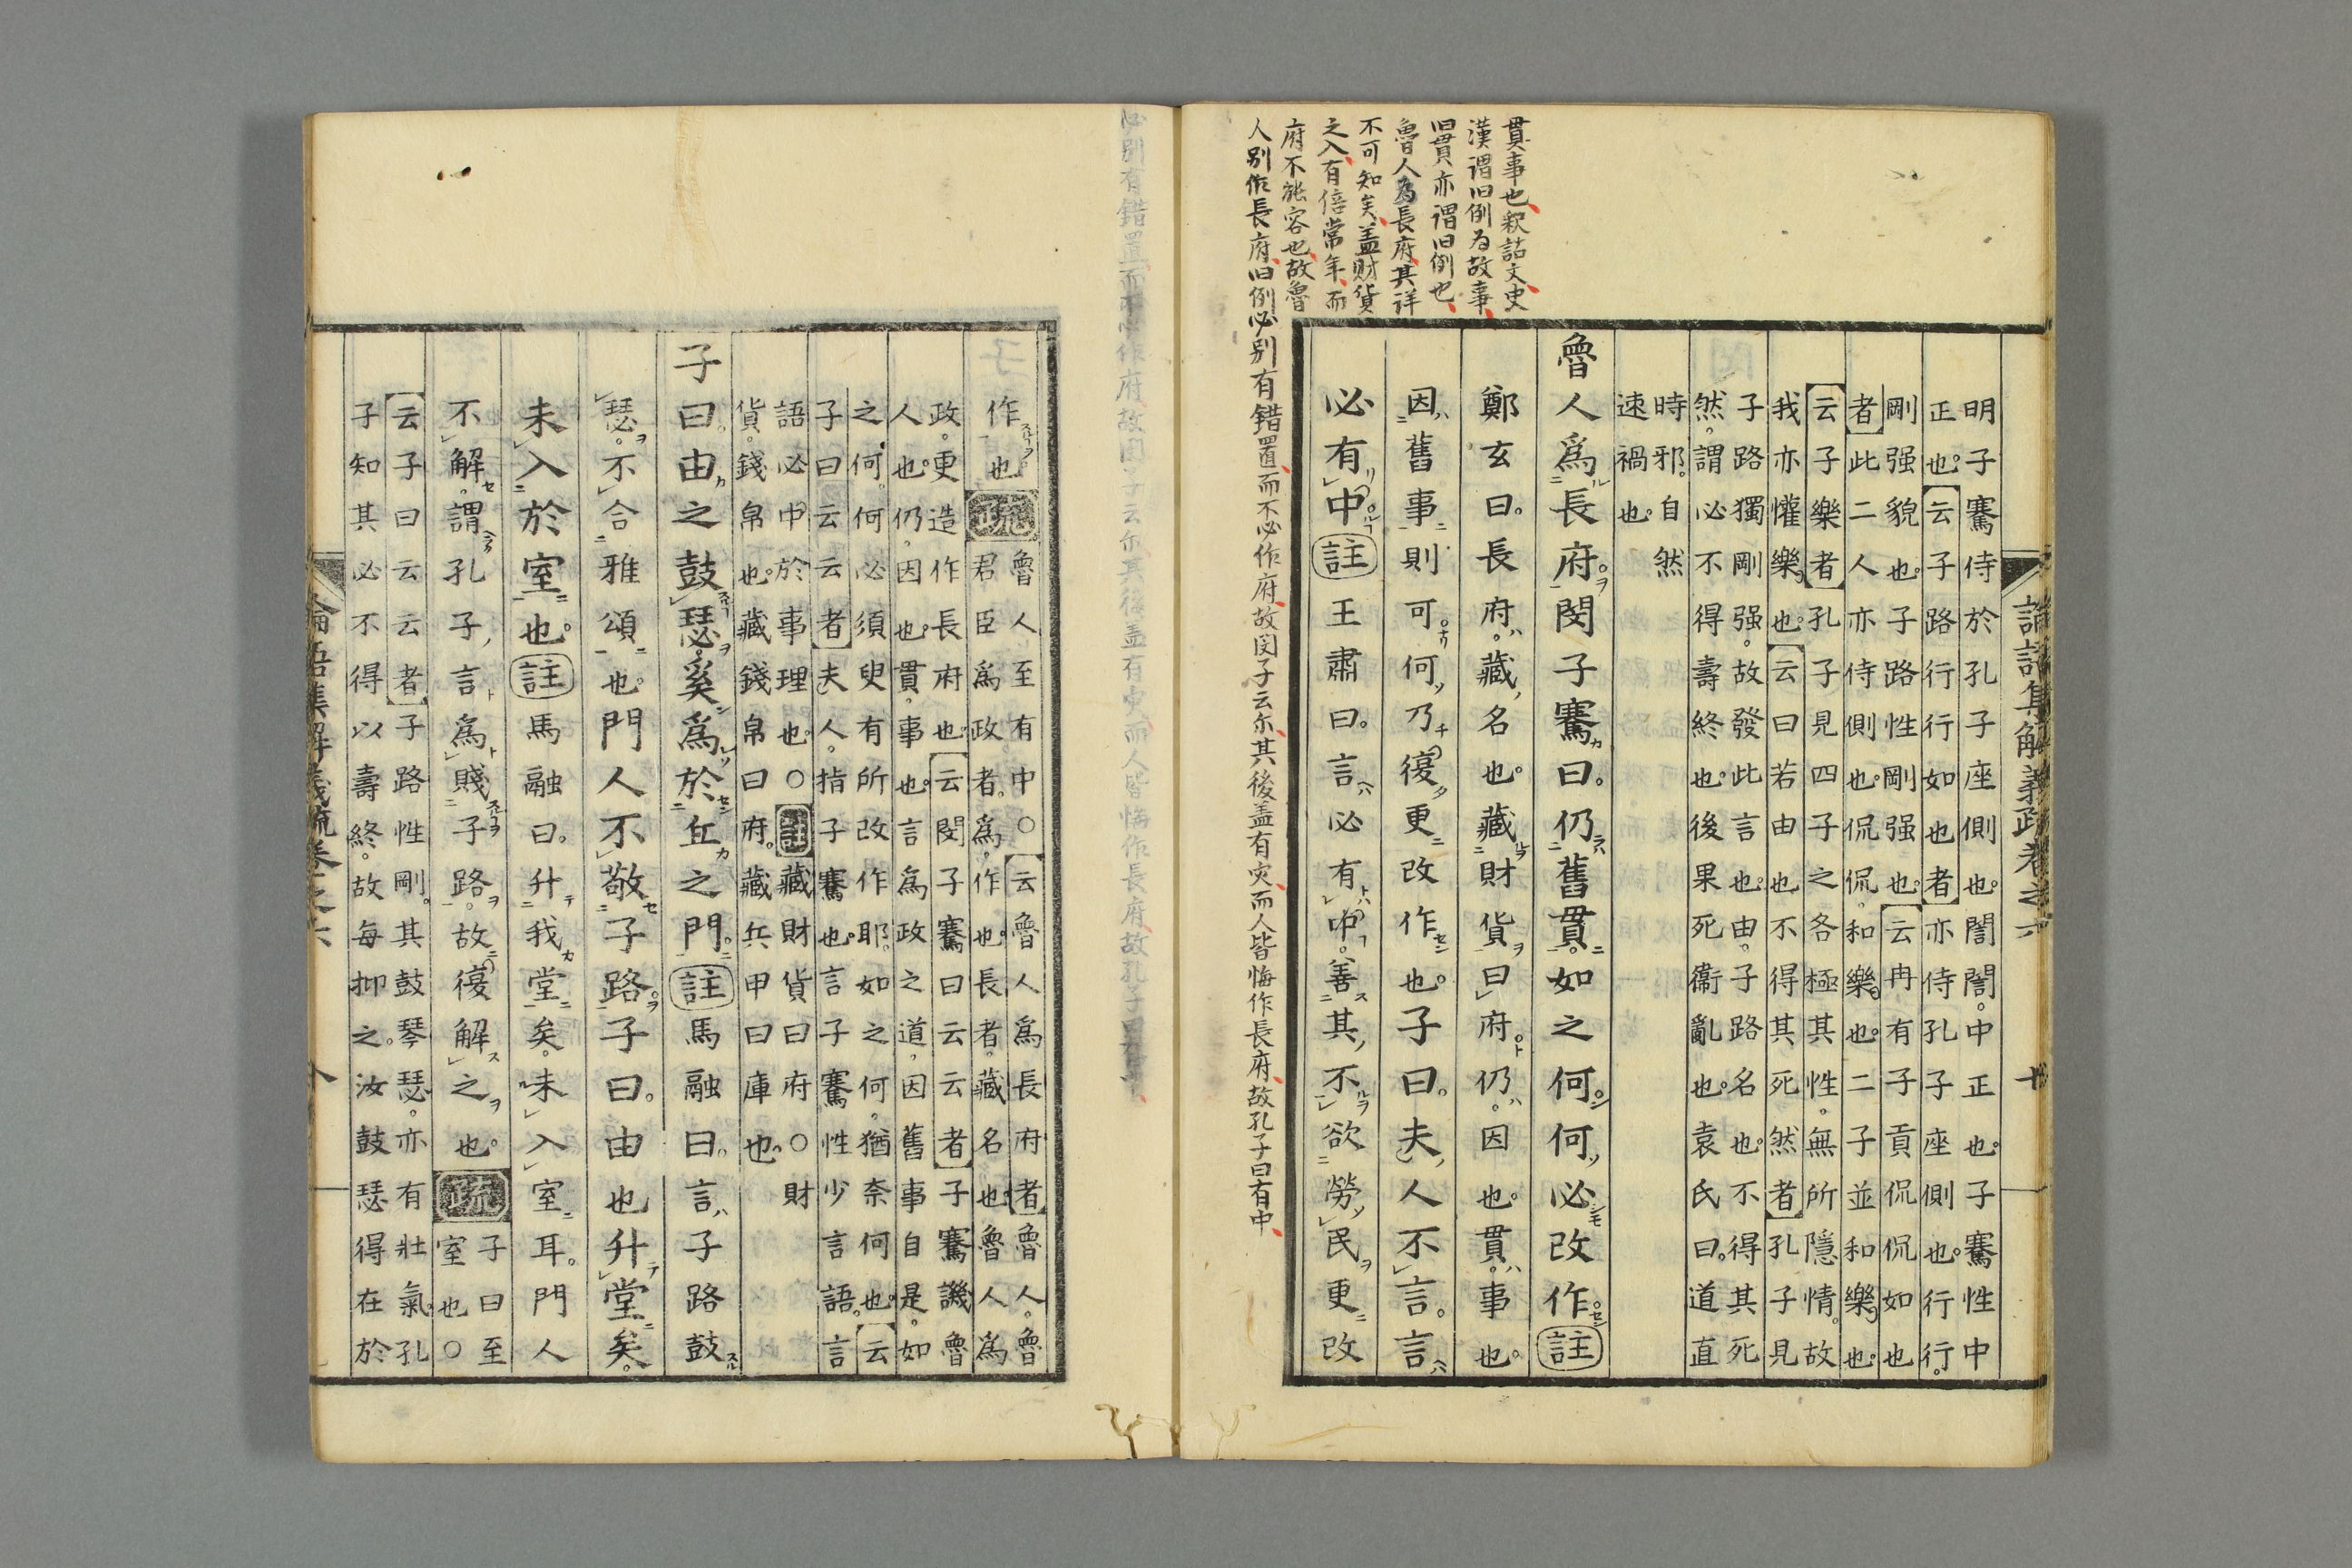 貫事也釈詁文史
漢謂旧例为故事
旧貫亦謂旧例也
魯人為長府其詳
不可知矣盖財貨
之入有倍常年而
府不能容也故魯
人別作長府旧例必別有錯置而不必作府故閔子云尓其後盖有灾而人皆悔作長府故孔子曰有中
論語集解義疏卷之六 十
明子騫侍於孔子座側也。誾誾。中正也。子騫性中
正也。云子路行行如也者亦侍孔子座側也。行行。
剛强貌也。子路性剛强也。云冉有子貢侃侃如也
者此二人亦侍側也。侃侃。和樂也。二子並和樂也。
云子樂者孔子見四子之各極其性。無所隱情。故
我亦懽樂也。云曰若由也不得其死然者孔子見
子路獨剛强。故發此言也。由。子路名也。不得其死
然。謂必不得壽終也。後果死衞亂也。袁氏曰。道直
時邪。自然
速禍也。
魯人爲長府。閔子騫曰。仍舊貫。如之何。何必改作。註
鄭玄曰。長府。藏名也。藏財貨曰府。仍。因也。貫。事也。
因舊事則可。何乃復更改作也。子曰。夫人不言。言
必有中。註王肅曰。言必有中。善其不欲勞民更改
作也。疏魯人至有中○云魯人爲長府者魯人。魯
君臣爲政者。爲。作也。長者。藏名也。魯人爲
政。更造作長府也。云閔子騫曰云云者子騫譏魯
人也。仍。因也。貫。事也。言爲政之道。因舊事自是。如
之何。何必須臾有所改作耶。如之何。猶奈何也。云
子曰云云者夫人。指子騫也。言子騫性少言語。言
語必中於事理也。○註藏財貨曰府○財
貨。錢帛也。藏錢帛曰府。藏兵甲曰庫也。
子曰。由之鼓瑟。奚爲於丘之門。註馬融曰。言子路鼓
瑟。不合雅頌也。門人不敬子路。子曰。由也升堂矣。
未入於室也。註馬融曰。升我堂矣。未入室耳。門人
不解。謂孔子言爲賤子路。故復解之也。疏子曰至
室也○
云子曰云云者子路性剛。其鼓琴瑟。亦有壯氣。孔
子知其必不得以壽終。故每抑之。汝鼓瑟得在於
論語集解義疏卷之六